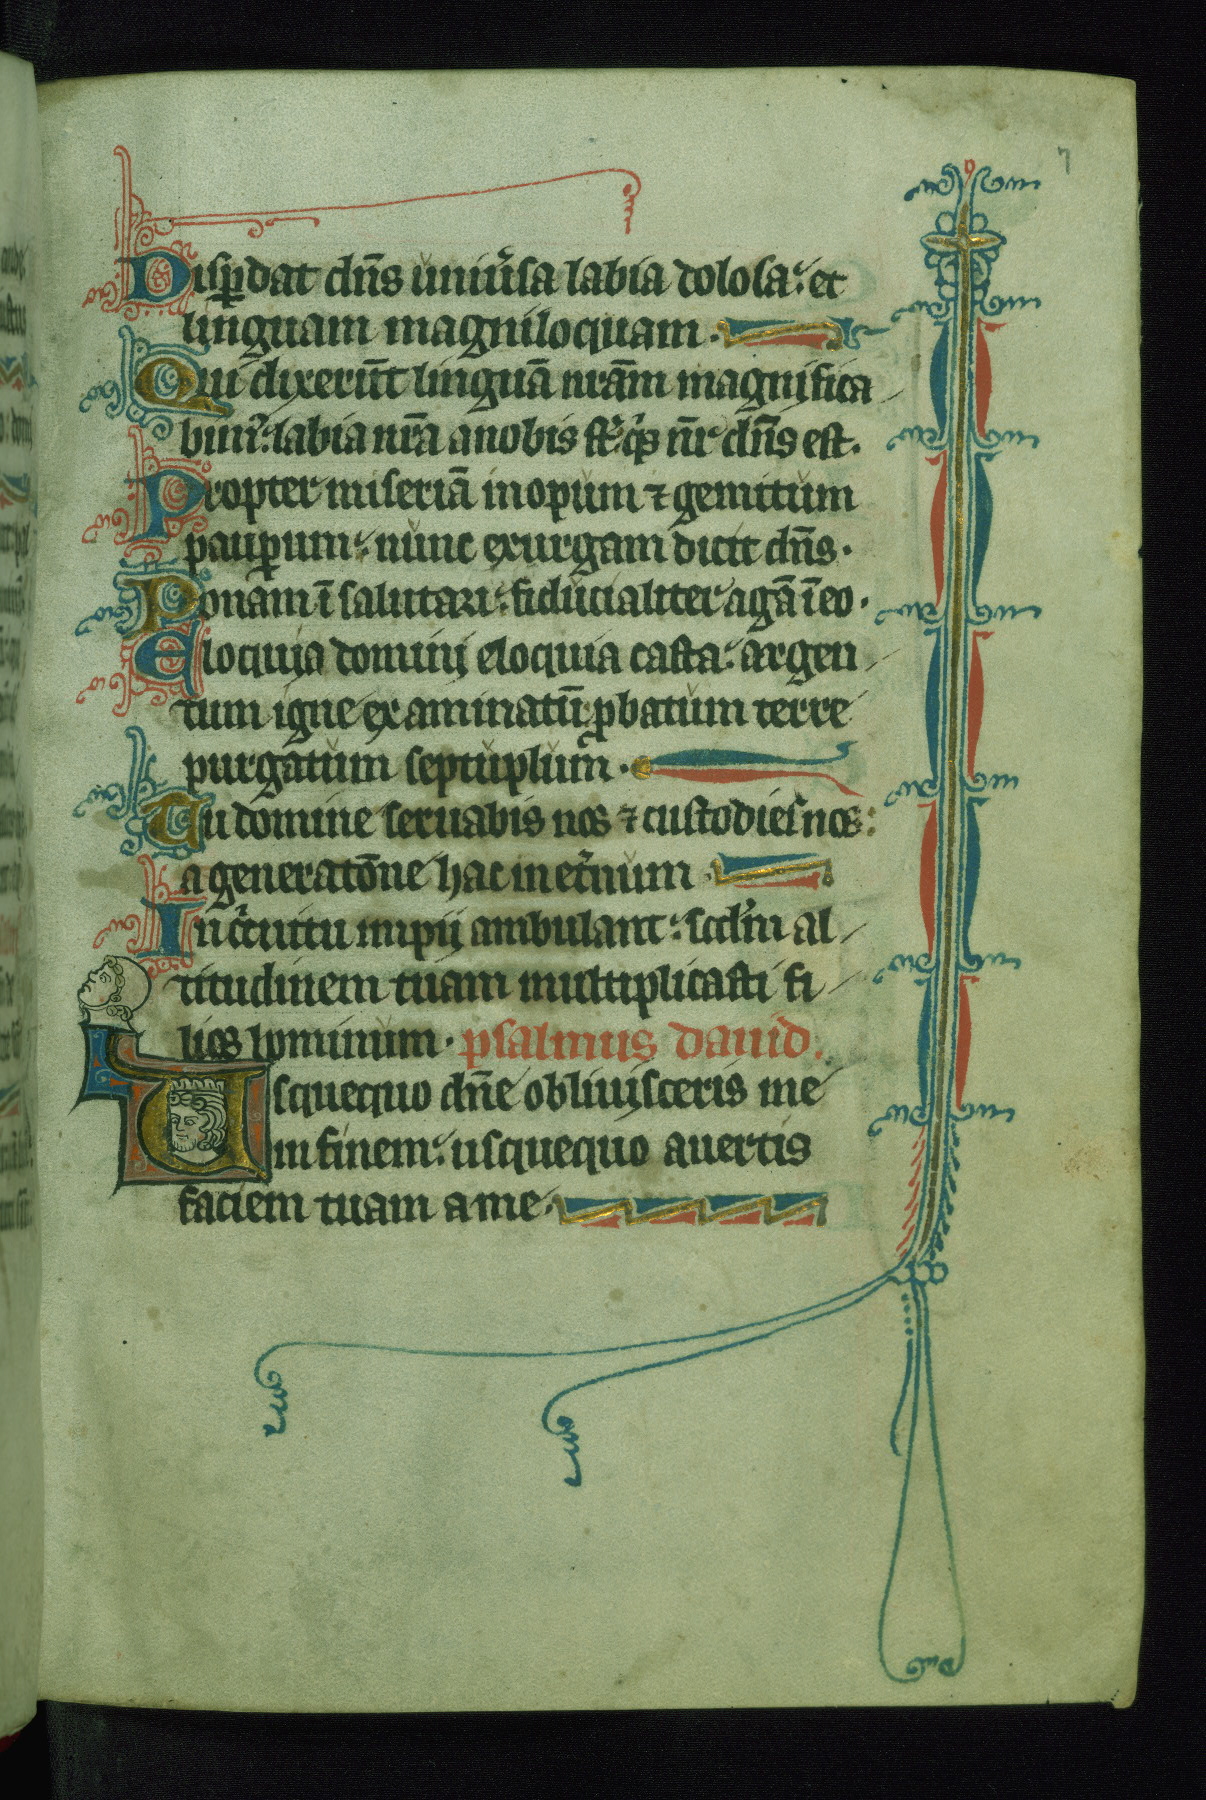 7
Disp̱dat dn̄s uniu̾sa labia dolosa: et
linguam magniloquam.
Qui dixerūt linguā nr̄am magnifica
bim᷒: labia nr̄a a nobis s̄t: q̾s nr̄ dn̄s est.
Propter miseriā inopum ⁊ gemitum
paup̱um: nunc exurgam dicit dn̄s.
Ponam ī salutari: fiducialiter agā ī eo.
Eloquia dominij eloquia casta: argen
tum igne examinatū ꝓbatum terre
purgatum septuplum.
Tu domine seruabis nos ⁊ custodies nos:
a generatōne hac in et̾num
In c̾cuitu impij ambulant: scd̄m al
titudinem tuam multiplicasti fi
lios hominum. psalmus dauid.
Usquequo dn̄e obliuisceris me
in finem: usquequo auertis
faciem tuam a me.